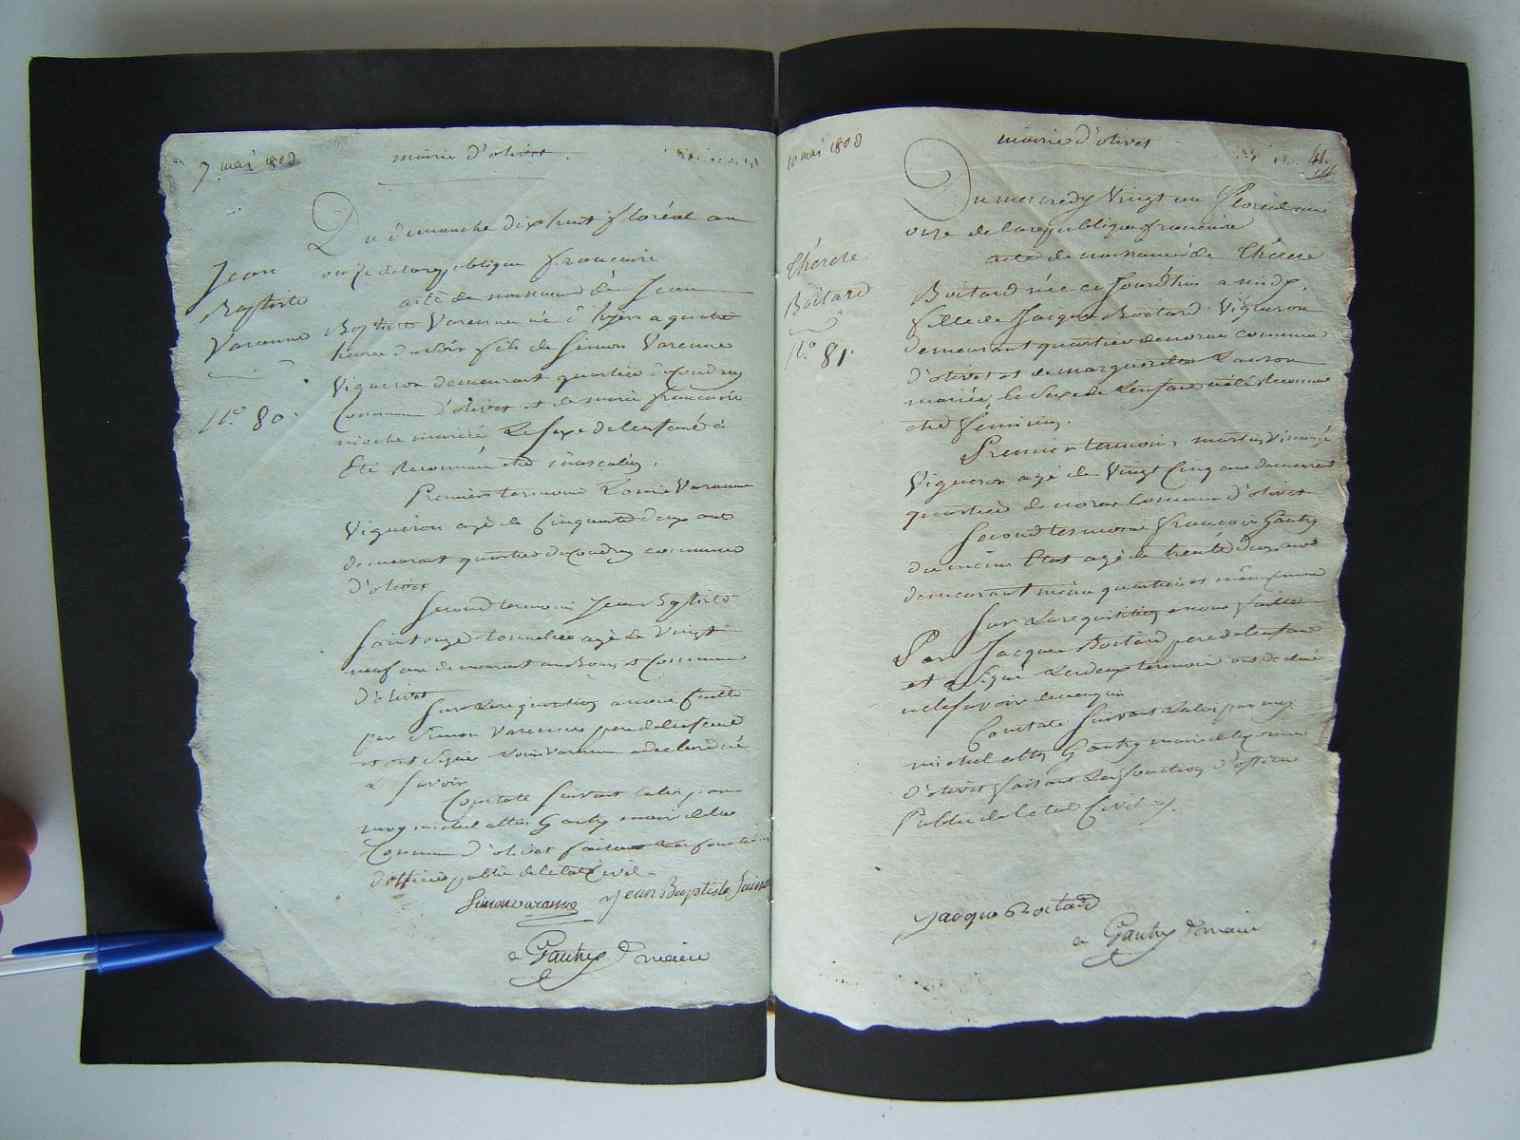 7 mai 1803
mairie d'olivet
Du dimanche dix huit floréal an
onze de la republique francaise
Jean
Baptiste
Varenne
N.º 80.
acte de naissance de Jean
Baptiste Varenne né à hyer a quatre
heure du soir fils de Simon Varenne
Vigneron demeurant quartier du Coudray
Commune d'olivet et de marie francoise
mioche mariée Le sexe de lenfant à
Eté Reconnu etre masculin.
Premier termoin Louis Varenne
Vigneron agé de Cinquante deux ans
demeurant quartier du Coudray commune
d'olivet
Second termoin Jean Baptiste
tonnelier agé de Vingt
neuf ans demeurant au Bourg et Commune
d'olivet
Sur La requisition a nous faitte
par Simon Varenne pere de lenfant
et ont Signé Louis Varenne a declaré ne
Savoir
Constaté Suivant la loi par
moy michel altin Gautry maire de la
Commune d'olivet faisant Les fonctions
d'officier public de letat Civil.
Simon varanne Jean Baptiste
Gautry maire
10 mai 1803
mairie d'olivet
41.
Du mercredy Vingt un Floréal an
onze de la republique francaise
Thérese
Boitard
N.º 81.
acte de naissance de Thérese
Boitard née ce Jourdhui a midy.
fille de Jacque Boitard Vigneron
demeurant quartier de noras commune
d'olivet et de margueritte Lauron
mariée, le Sexe de Lenfant a été Reconnu
etre féminin.
Premier termoin, martin
Vigneron agé de Vingt Cinq ans demeurant
quartier de noras Commune d'olivet
Second termoin francois Gautry
du même Etat agé de trente deux ans
demeurant même quartier et même commune
Sur La requisition a nous faitte
Par Jacque Boitard pere de lenfant
et a Signé Les deux termoins ont declaré
ne le Savoir de ce enquis
Constaté Suivant La loi par moy
michel altin Gautry maire de la Commune
d'olivet faisant Les fonctions d'officier
Public de letat Civil
Jacque Boitard
Gautry maire